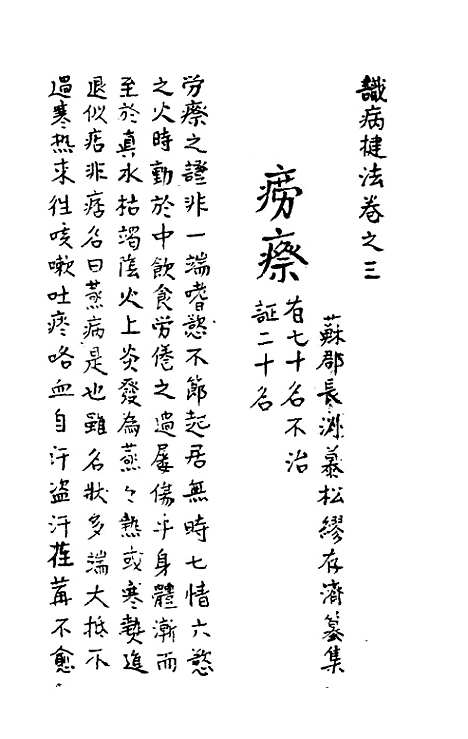 識病揵法卷之三
蘇郡長洲慕松繆存濟纂集
癆瘵
有七十名不治
証二十名
労瘵之證非一端嗜慾不節起居無時七情六慾
之火時動於中飲食労倦之過屢傷乎身體漸而
至於真水枯竭陰火上炎發為蒸〻熱或寒熱進
退似瘧非瘧名曰蒸病是也雖名狀多端大抵不
過寒热来往咳嗽吐痰咯血自汗盗汗荏苒不愈